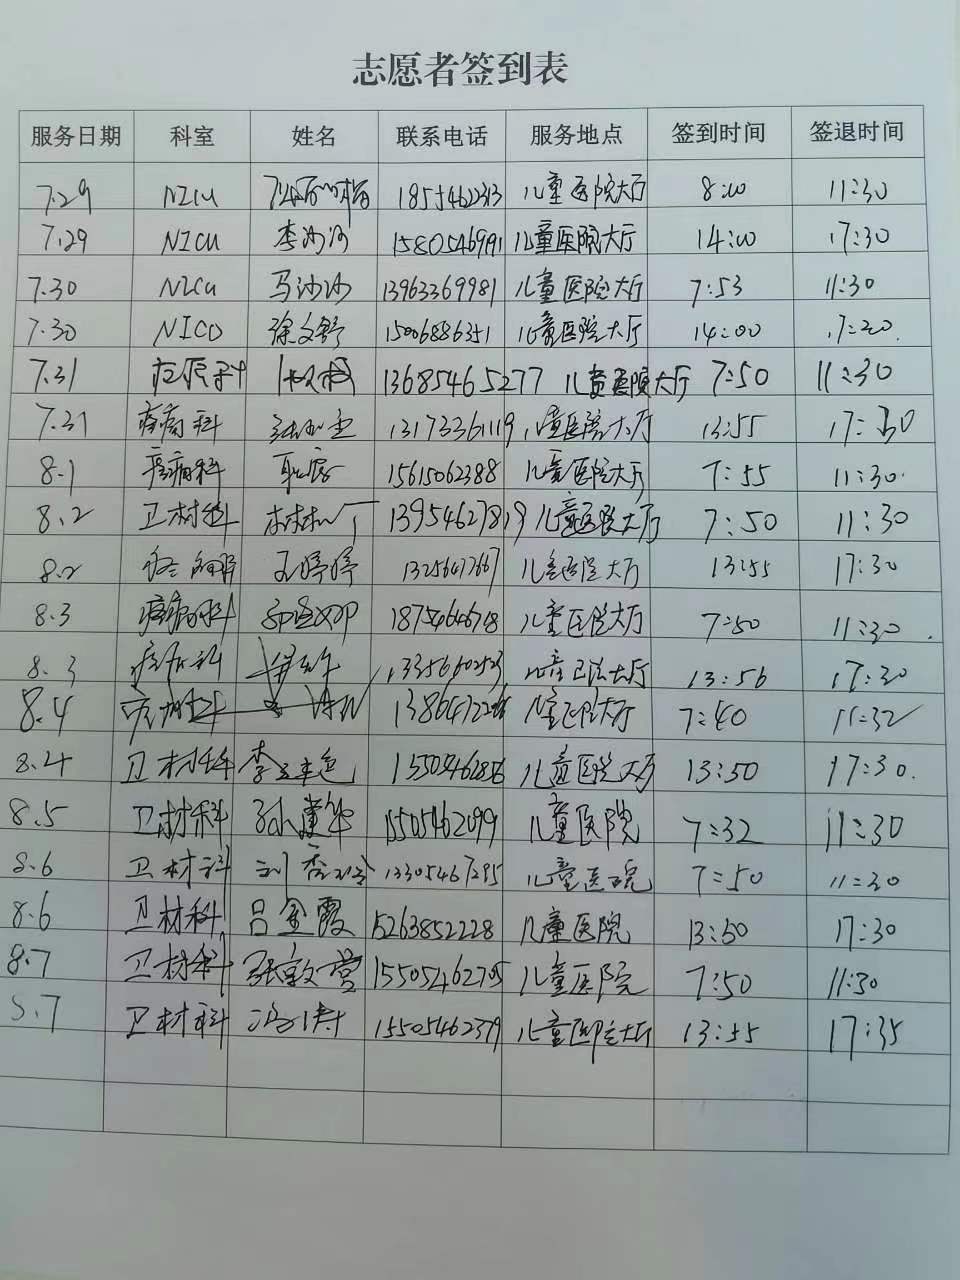 志愿者签到表
服务日期 科室 姓名 联系电话 服务地点 签到时间 签退时间
7.29 NICU 儿童医院大厅 8:00 11:30
7.29 NICU 李沙河 儿童医院大厅 14:00 17:30
7.30 NICU 马沙沙 13963369981 儿童医院大厅 7:53 11:30
7.30 NICO 徐文舒 15006886351 儿童医院大厅 14:00 17:20
7.31 13685465277 儿童医院大厅 7:50 11:30
7.31 疼痛科 13173361119 儿童医院大厅 13:55 17:30
8.1 疼痛科 耿宸 15615062388 儿童医院大厅 7:55 11:30
8.2 卫材科 13954627819 儿童医院大厅 7:50 11:30
8.2 孟婷婷 13256417667 儿童医院大厅 13:55 17:30
8.3 疼痛科 儿童医院大厅 7:50 11:30
8.3 儿童医院大厅 13:56 17:30
8.4 儿童医院大厅 7:40 11:32
8.4 卫材科 15505462856 儿童医院大厅 13:50 17:30
8.5 卫材科 孙董华 15505462099 儿童医院 7:32 11:30
8.6 卫材科 13305467295 儿童医院 7:50 11:30
8.6 卫材科 吕金霞 15263852228 儿童医院 13:50 17:30
8.7 卫材科 张敦营 15505462705 儿童医院 7:50 11:30
8.7 卫材科 冯涛 15505462379 儿童医院大厅 13:55 17:35